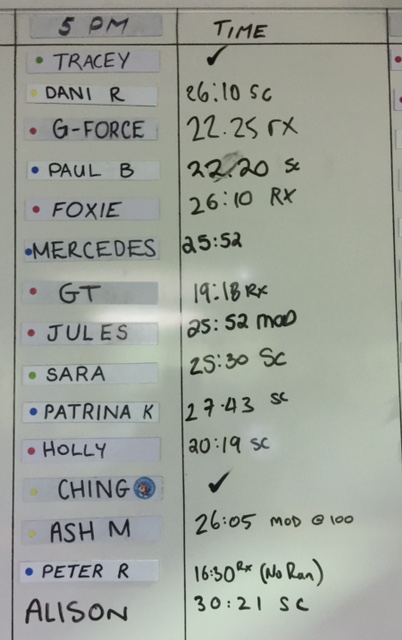 5 PM TIME
TRACEY ✓
DANI R 26:10 SC
G-FORCE 22.25 rx
PAUL B 22.20 Sc
FOXIE 26:10 RX
MERCEDES 25:52
GT 19:18 Rx
JULES 25:52 MOD
SARA 25:30 SC
PATRINA K 27.43 SC
HOLLY 20:19 SC
CHING ✓
ASH M 26:05 MOD @ 100
PETER R 16:30 Rx (No Ran)
ALISON 30:21 SC